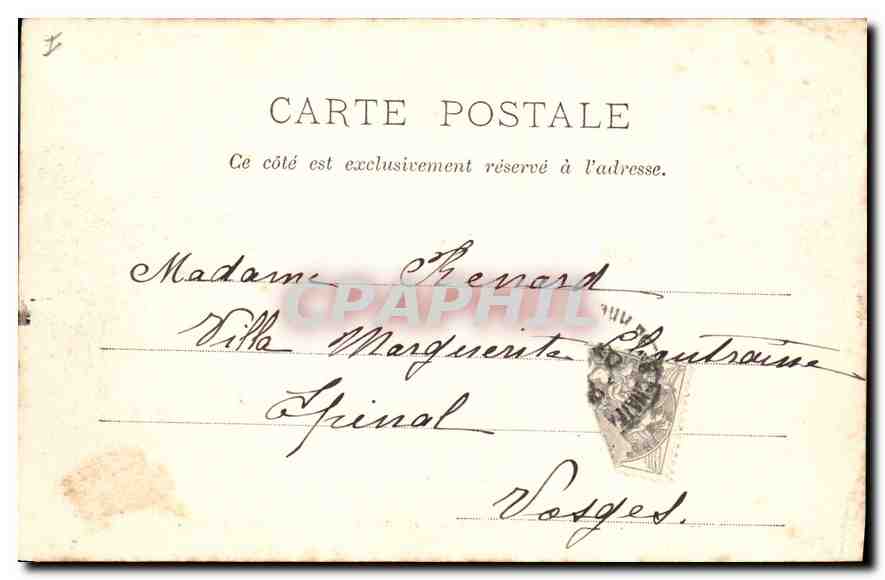 CARTE POSTALE
Ce côté est exclusivement réservé à l'adresse.
Madame Renard
CPAPHIL
Villa Marguerite Chantraine
Epinal
Vosges.